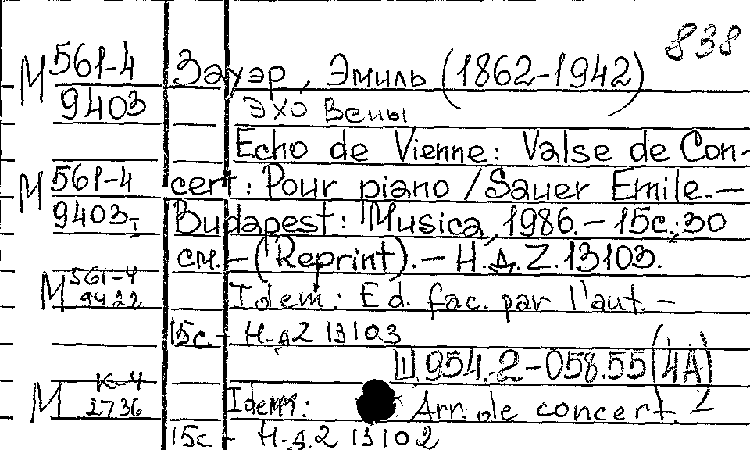 838
М 561-4 Зауэр, Эмиль (1862-1942)
9403 Эхо Вены
Echo de Vienne: Valse de Con-
М 561-4 cert: Pour piano / Sauer Emile.—
9403-I Budapest: Musica, 1986.— 15с.; 30
см.— (Reprint).— Н.д. Z. 13103.
М 561-4 Idem: Ed. fac. par l'aut.—
9422
15с.— Н.д. Z 13103
Ш.954.2-058.55(4А)
М К-4 Idem: Arr. de concert.—
2736
15с.— Н.д. Z 13102